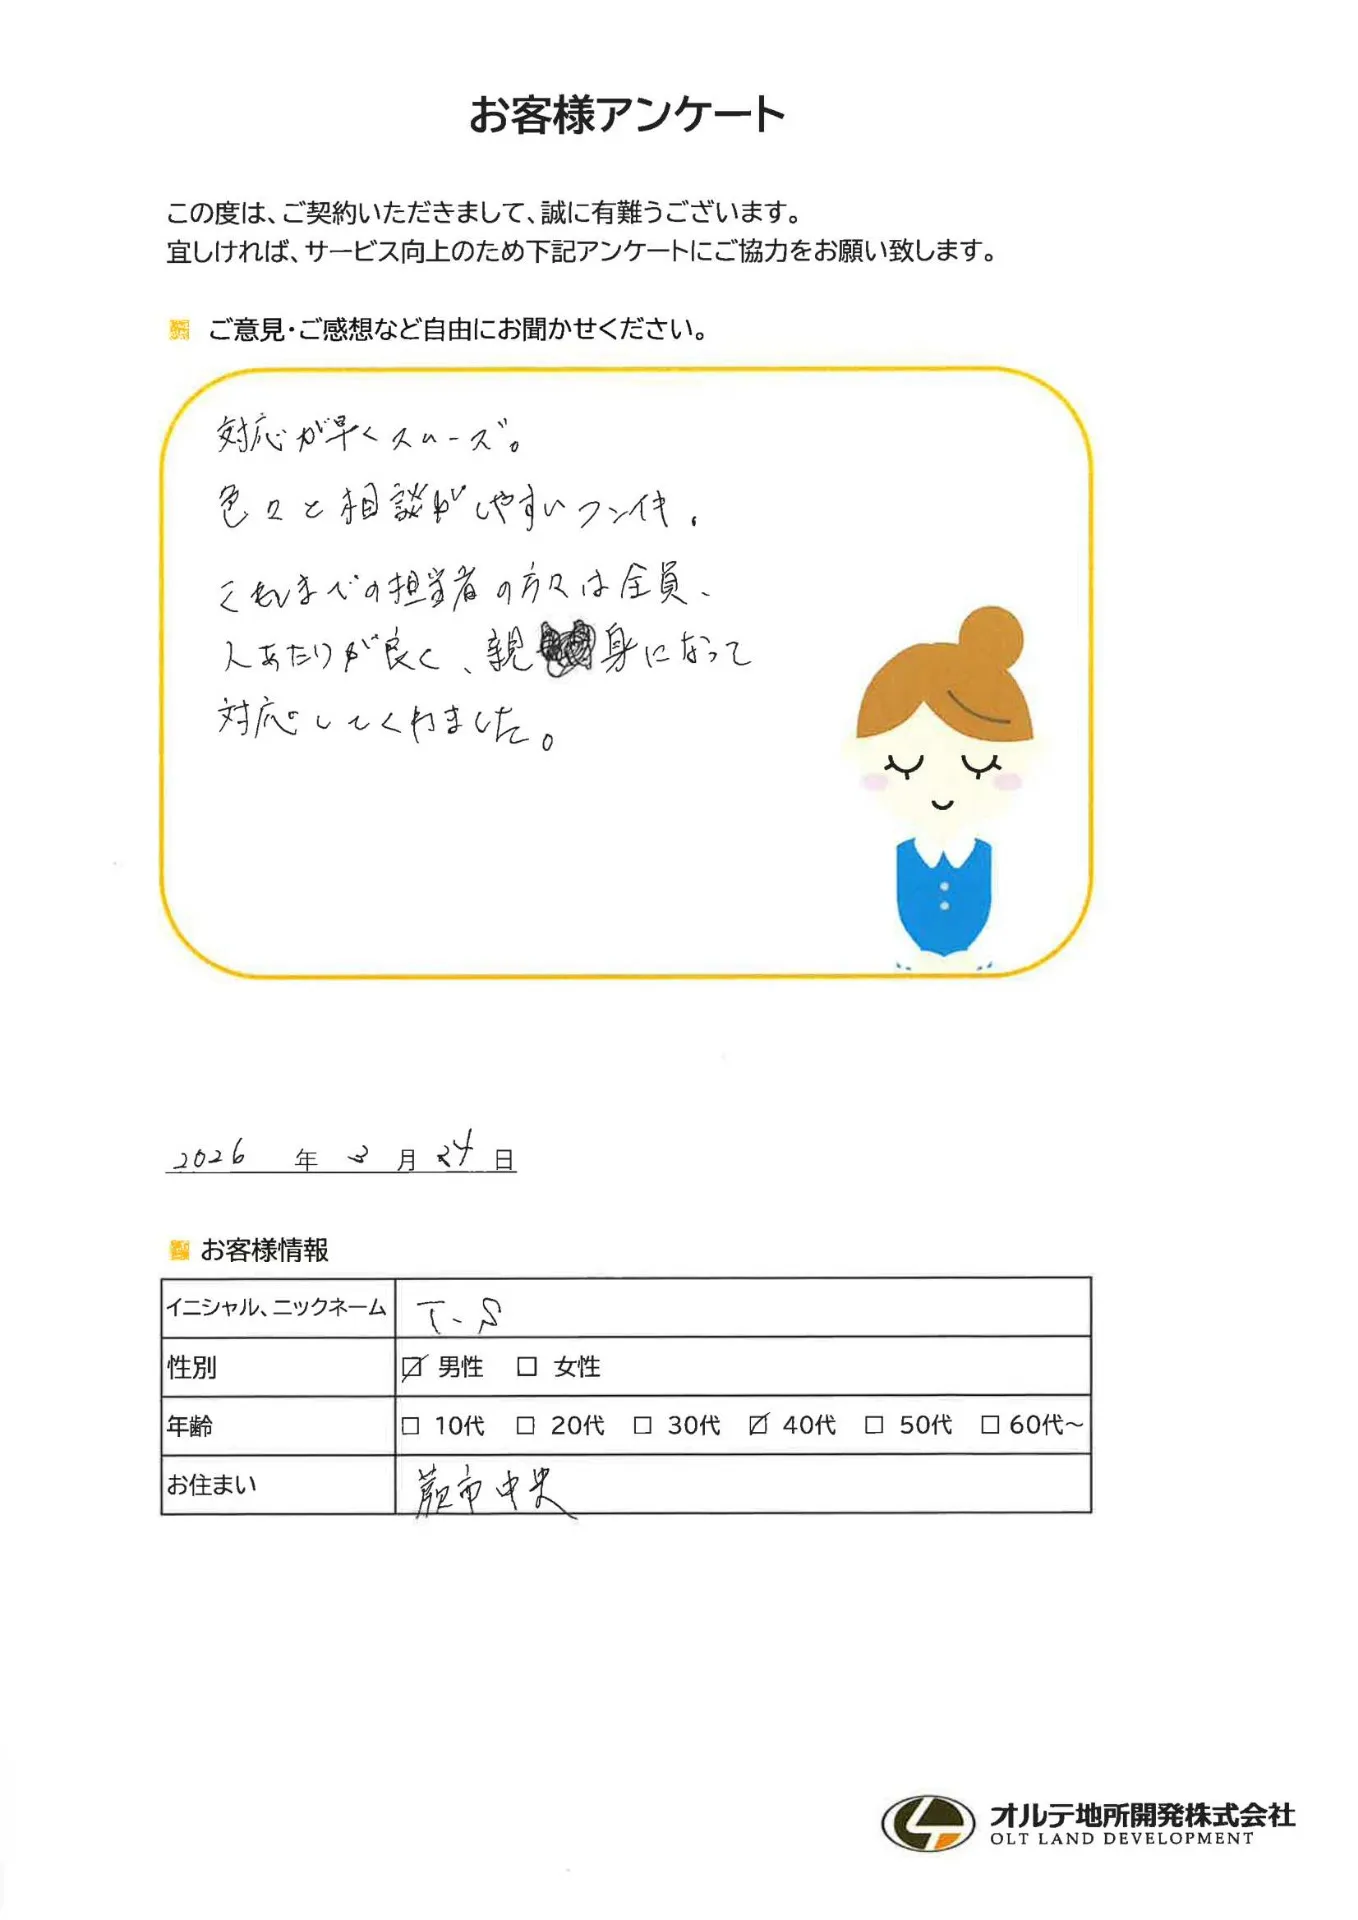 お客様アンケート
この度は、ご契約いただきまして、誠に有難うございます。
宜しければ、サービス向上のため下記アンケートにご協力をお願い致します。
ご意見・ご感想など自由にお聞かせください。
対応が早くスムーズ。
色々と相談がしやすいフンイキ。
これまでの担当者の方々は全員、
人あたりが良く、親身になって
対応してくれました。
2026 年 3 月 24 日
お客様情報
イニシャル、ニックネーム T.S
性別 ☑ 男性 □ 女性
年齢 □ 10代 □ 20代 □ 30代 ☑ 40代 □ 50代 □ 60代～
お住まい 蕨市中央
オルテ地所開発株式会社
OLT LAND DEVELOPMENT